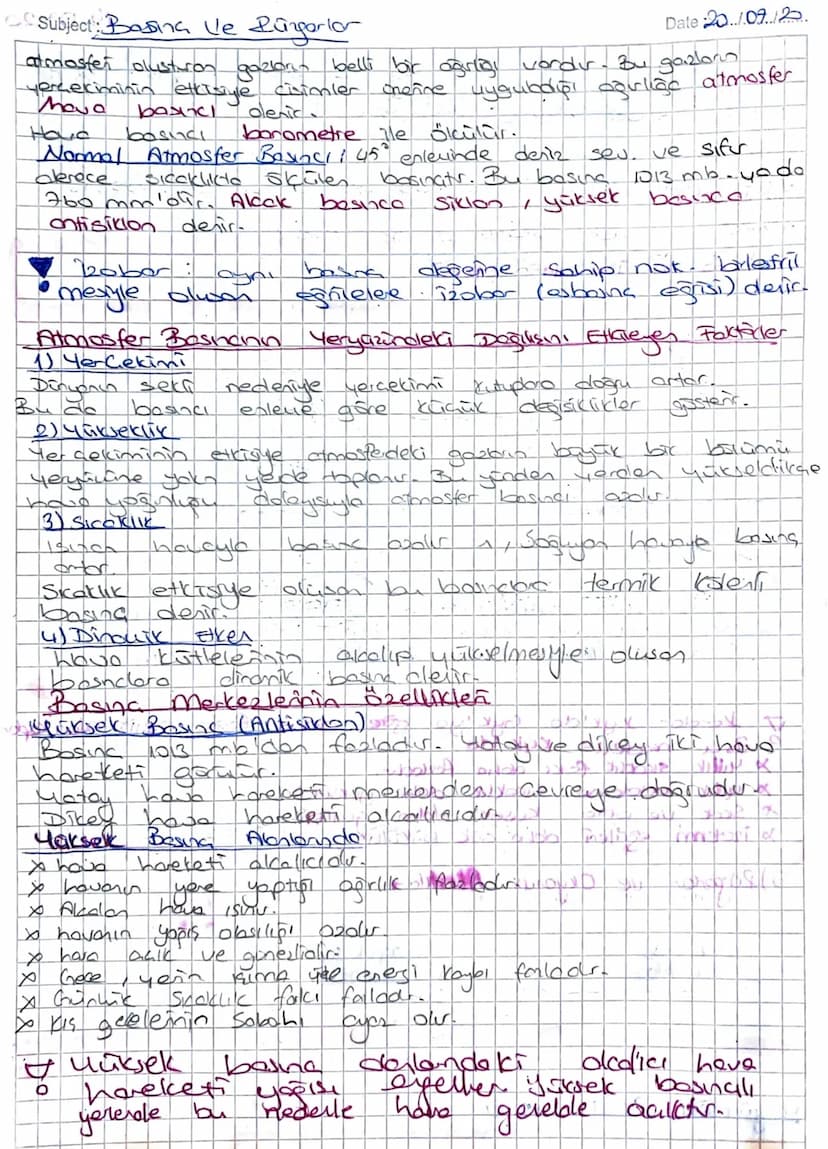 Subject: Basınç Ve Rüzgarlar
Date: 20../09../20.
atmosferi oluşturan gazların belli bir ağırlığı vardır. Bu gazların
yerçekiminin etkisiyle cisimler üzerine uyguladığı ağırlığa atmosfer
hava basıncı denir.
Hava basıncı barometre ile ölçülür.
Normal Atmosfer Basıncı: 45° enleminde deniz sev. ve sıfır
derece sıcaklıkta ölçülen basınçtır. Bu basınç 1013 mb. ya da
760 mm'dir. Alçak basınca siklon, yüksek basınca
antisiklon denir.
İzobar: aynı basınç değerine sahip nok. birleştiril
mesiyle oluşan eğrilere izobar (eşbasınç eğrisi) denir.
Atmosfer Basıncının Yeryüzündeki Dağılışını Etkileyen Faktörler
1) Yerçekimi
Dünyanın şekli nedeniyle yerçekimi kutuplara doğru artar.
Bu da basıncı enleme göre küçük değişiklikler gösterir.
2) Yükseklik
Yer çekiminin etkisiyle atmosferdeki gazların büyük bir bölümü
yeryüzüne yakın yerde toplanır. Bu yüzden yerden yükseldikçe
hava yoğunluğu dolayısıyla atmosfer basıncı azalır.
3) Sıcaklık
Isınan havayla basınç azalır, Soğuyan havayla basınç
artar
Sıcaklık etkisiyle oluşan bu basınçlara termik kökenli
basınç denir.
4) Dinamik Etken
hava kütlelerinin alçalıp yükselmesiyle oluşan
basınçlara dinamik basınç denir.
Basınç Merkezlerinin Özellikleri
Yüksek Basınç (Antisiklon)
Basınç 1013 mb'dan fazladır. Yatay ve dikey iki hava
hareketi görülür.
Yatay hava hareketi merkezden çevreye doğrudur.
Dikey hava hareketi alçalıcıdır.
Yüksek Basınç Alanlarında
x hava hareketi alçalıcıdır.
x havanın yere yaptığı ağırlık fazladır.
x Alçalan hava ısınır.
x havanın yağış olasılığı azalır.
x hava açık ve güneşlidir.
x Gece, yerin ışıma ile enerji kaybı fazladır.
x Günlük Sıcaklık farkı fazladır.
x Kış gecelerinin Sabahı ayaz olur.
Yüksek basınç alanlarındaki alçalıcı hava
hareketi yağışı engeller yüksek basınçlı
yerlerde bu nedenle hava genelde açıktır.